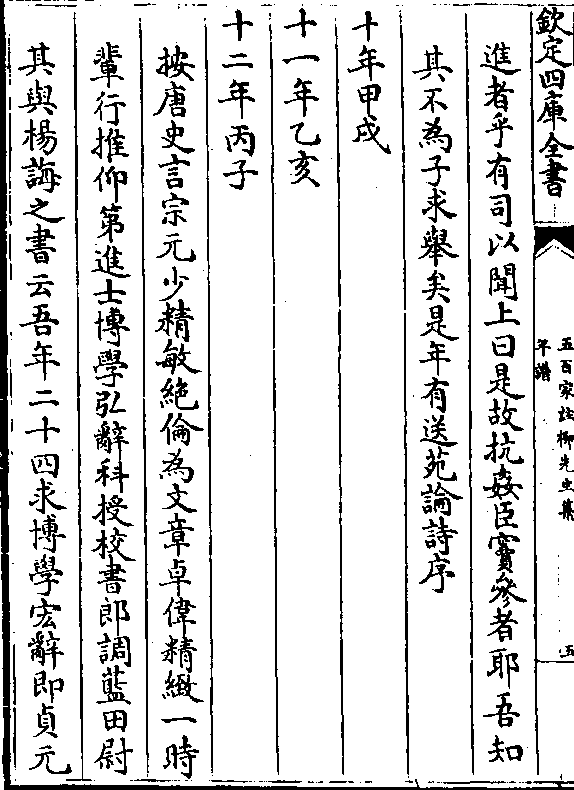 欽定四庫全書
五百家註柳先生集
年譜
五
進者乎有司以聞上曰是故抗姦臣竇參者耶吾知
其不為子求舉矣是年有送苑論詩序
十年甲戌
十一年乙亥
十二年丙子
按唐史言宗元少精敏絶倫為文章卓偉精緻一時
輩行推仰第進士博學弘辭科授校書郎調藍田尉
其與楊誨之書云吾年二十四求博學宏辭即貞元